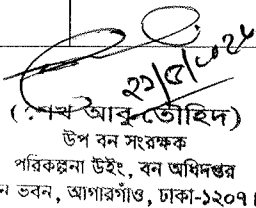 ২১/৫/২০২৪
(শেখ আবু তৌহিদ)
উপ বন সংরক্ষক
পরিকল্পনা উইং, বন অধিদপ্তর
ন ভবন, আগারগাঁও, ঢাকা-১২০৭।